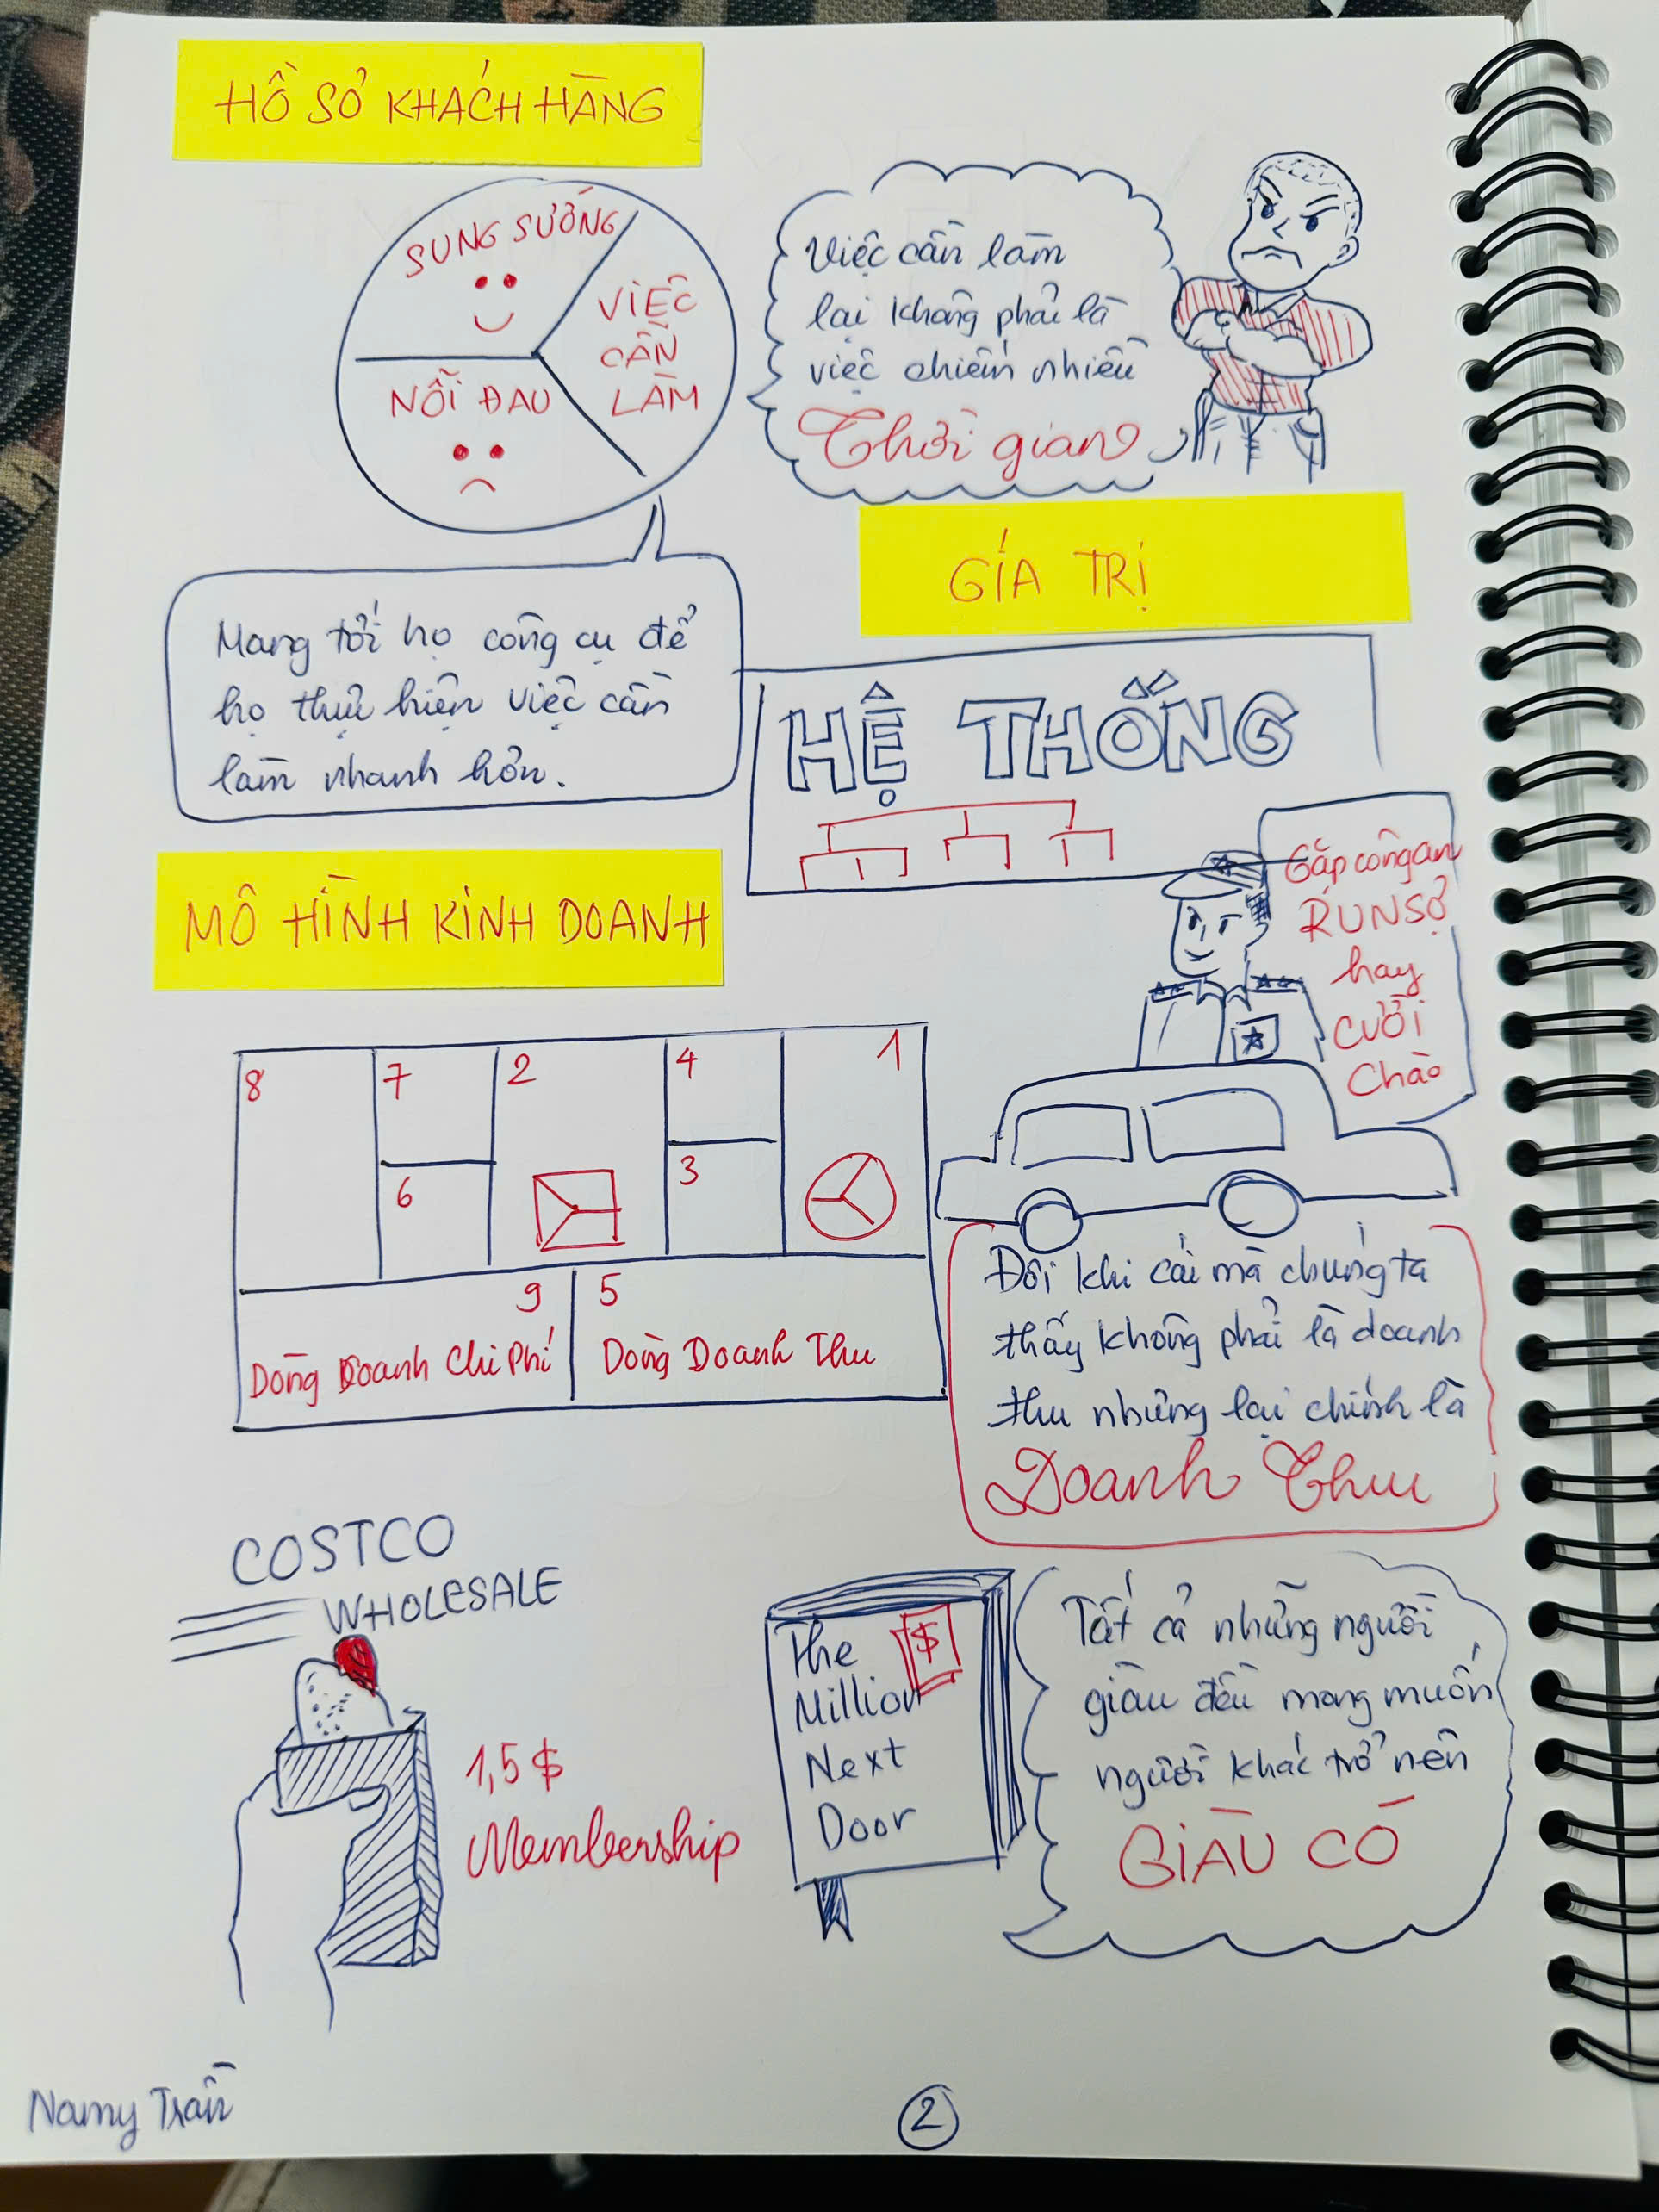 HỒ SƠ KHÁCH HÀNG
SUNG SƯỚNG
VIỆC
CẦN
LÀM
NỖI ĐAU
Việc cần làm
lại không phải là
việc chiếm nhiều
Thời gian
GÍA TRỊ
Mang tới họ công cụ để
họ thực hiện việc cần
làm nhanh hơn.
HỆ THỐNG
MÔ HÌNH KINH DOANH
Gặp công an
RUN SỢ
hay
CƯỜI
Chào
8
7
2
4
1
6
3
9
5
Dòng Doanh Chi Phí
Dòng Doanh Thu
Đôi khi cái mà chúng ta
thấy không phải là doanh
thu nhưng lại chính là
Doanh Thu
COSTCO
WHOLESALE
1,5 $
Membership
The
$
Million
Next
Door
Tất cả những người
giàu đều mong muốn
người khác trở nên
GIÀU CÓ
Namy Trần
2